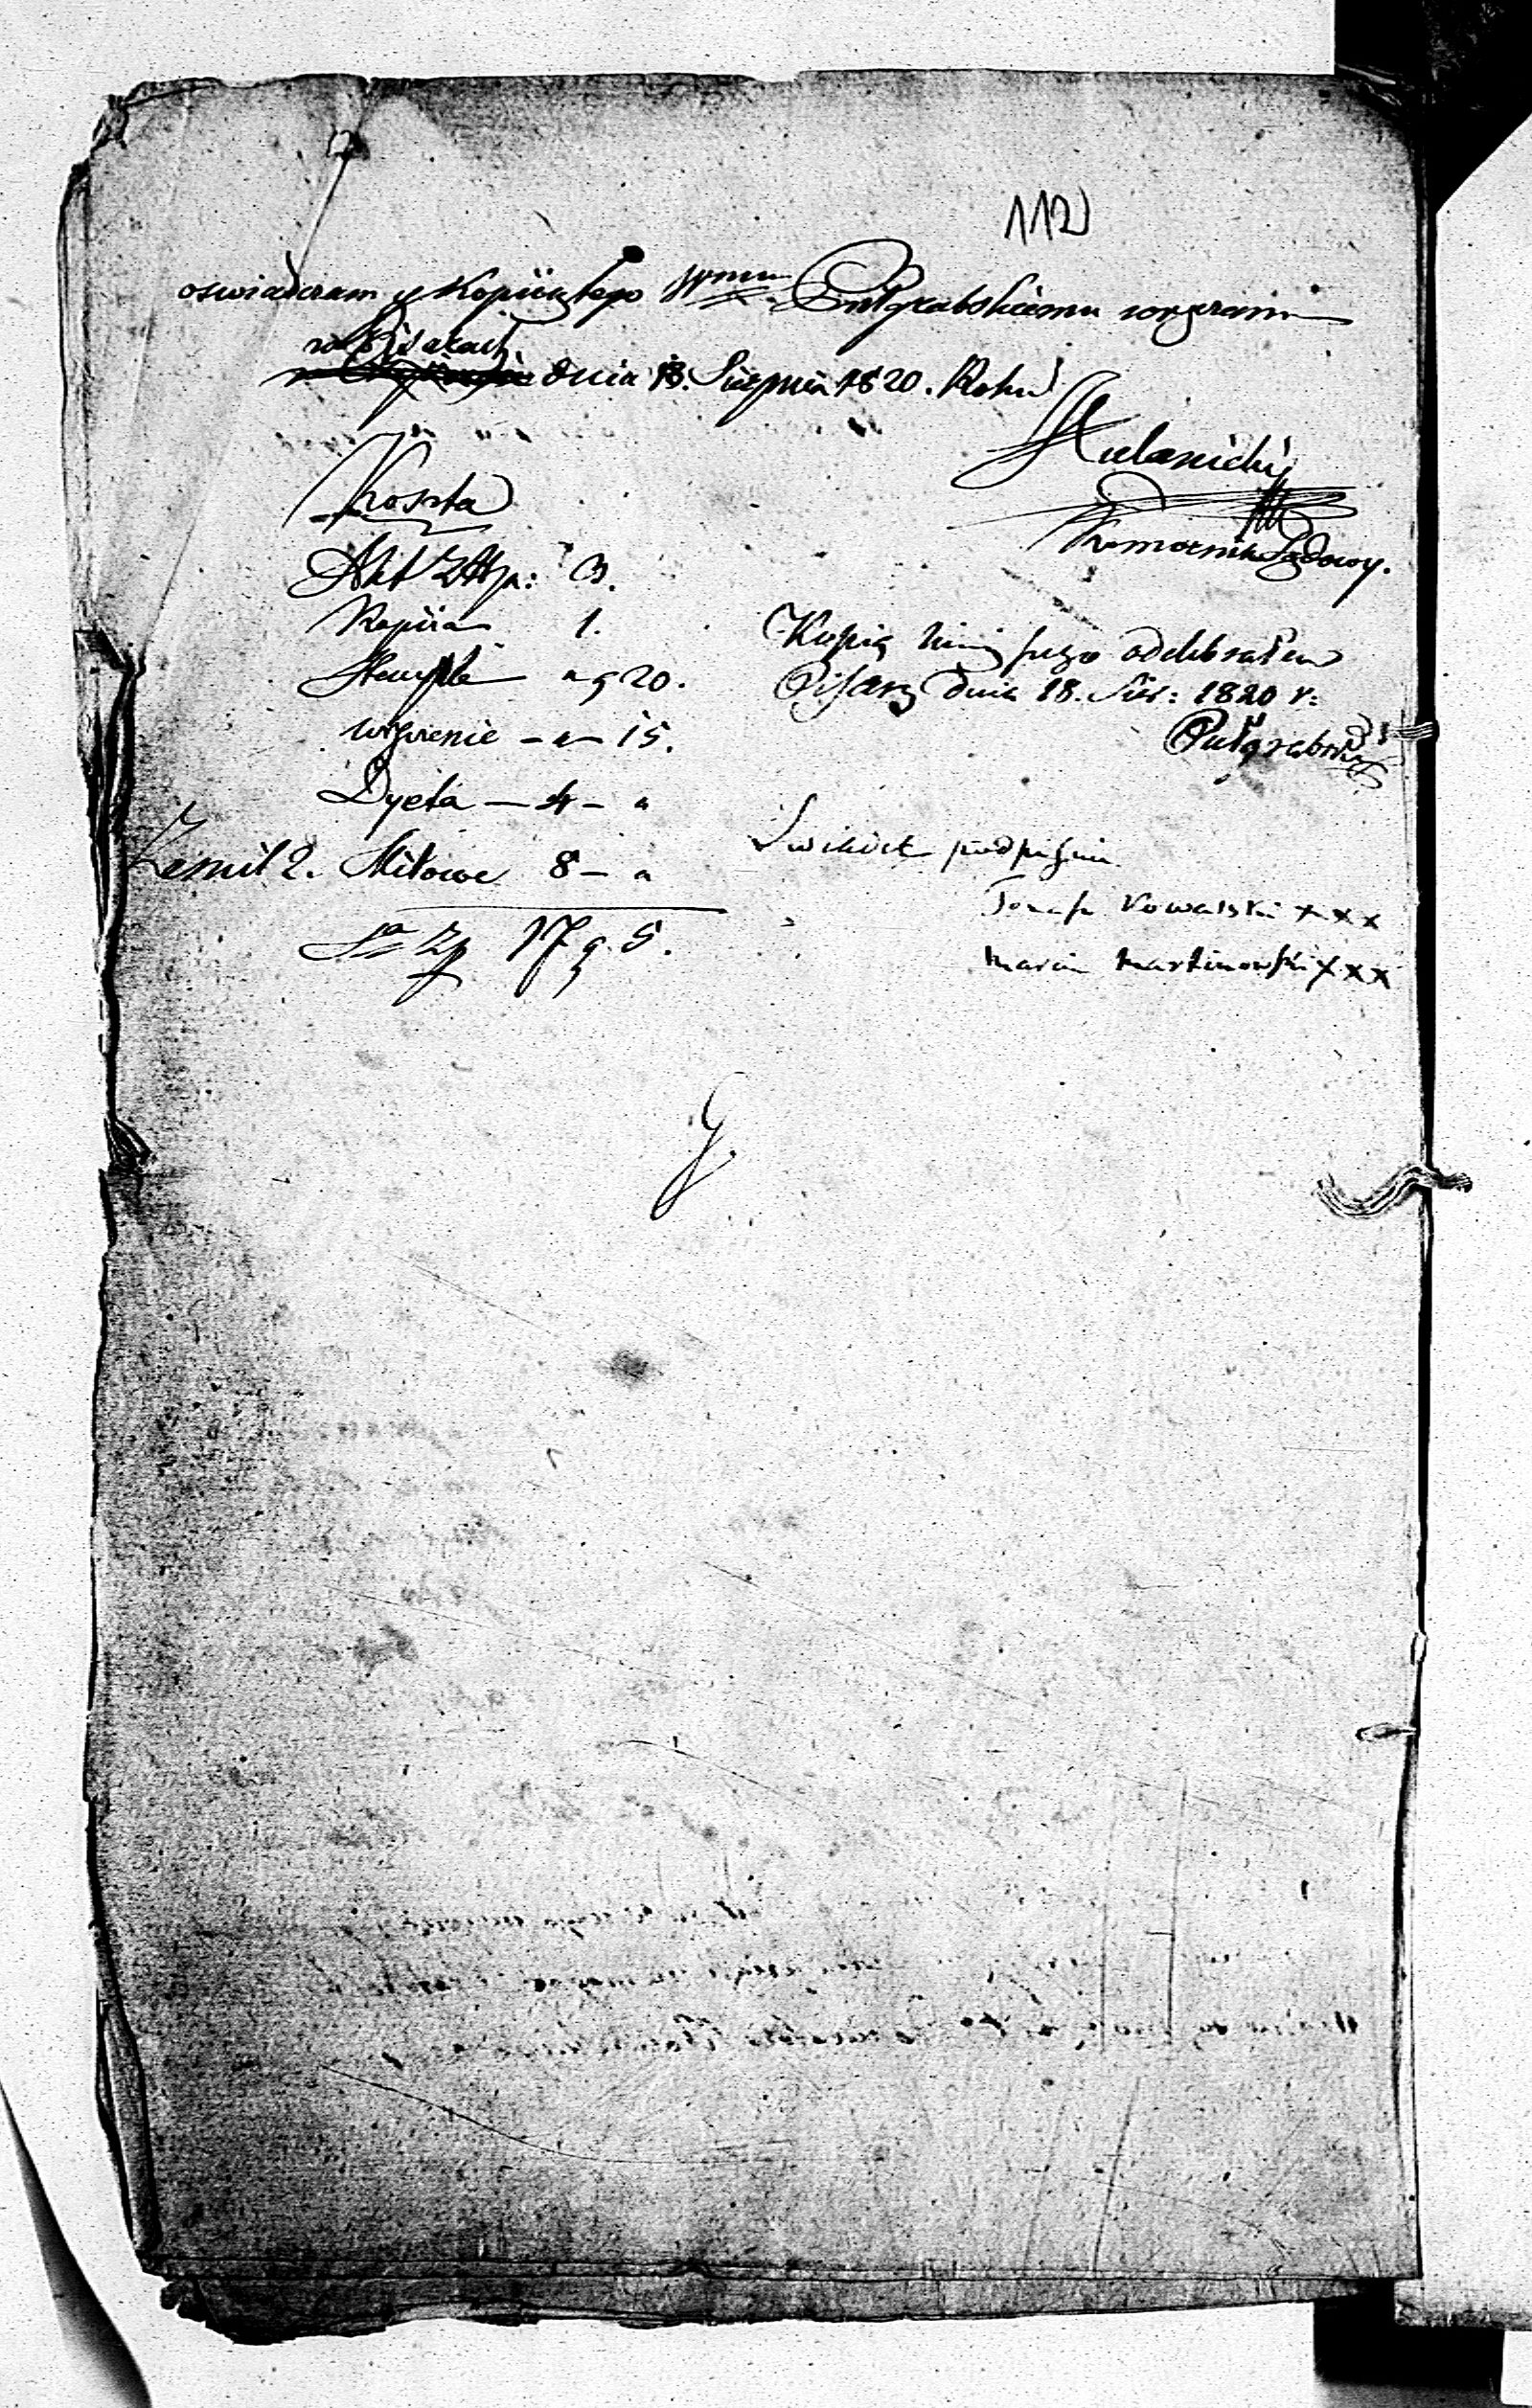 112
oswiadczam y Kopiią tego JPmu Pułgrabskiemu wręczam
w Pisarach
dnia 18. Sierpnia 1820. Roku
Hulanicki
Komornik Sądowy.
Koszta
Akt Złłp: 3.
Kopiia 1.
Stemple " g 20.
wpisienie — " — 15.
Dyeta — 4 — "
Zemil 2. Milowe 8 — "
Sa Zp 17 g. 5.
Kopią ninieyszego odebrałem
Pisary dnia 18. Sier: 1820 r:
Pułgrabski
Swiadek podpisani
Tomasz Kowalski xxx
Marcin Martinowski xxx